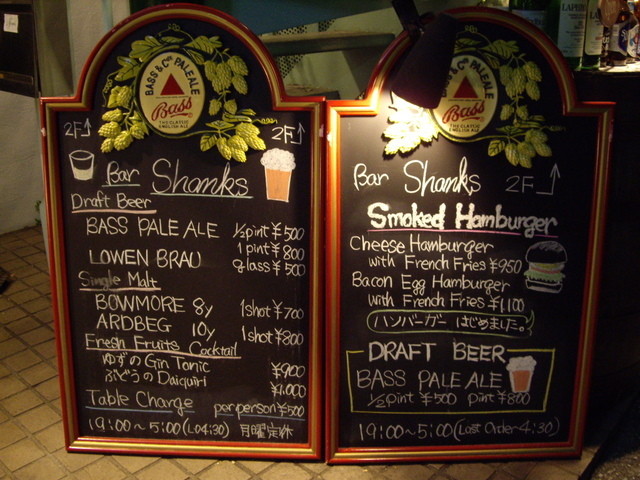 BASS & Co's PALE ALE
Bass
THE CLASSIC
ENGLISH ALE
2F 2F
Bar Shanks
Draft Beer
BASS PALE ALE ½pint ¥500
1pint ¥800
LOWEN BRAU glass ¥500
Single Malt
BOWMORE 8y 1shot ¥700
ARDBEG 10y 1shot ¥800
Fresh Fruits Cocktail
ゆずのGin Tonic ¥900
ぶどうのDaiquiri ¥1,000
Table Charge per person ¥500
19:00~5:00 (L.O4:30) 月曜定休
BASS & Co's PALE ALE
Bass
THE CLASSIC
ENGLISH ALE
Bar Shanks 2F
Smoked Hamburger
Cheese Hamburger
with French Fries ¥950
Bacon Egg Hamburger
with French Fries ¥1,100
ハンバーガー はじめました。
DRAFT BEER
BASS PALE ALE
½pint ¥500 pint ¥800
19:00~5:00 (Last Order 4:30)